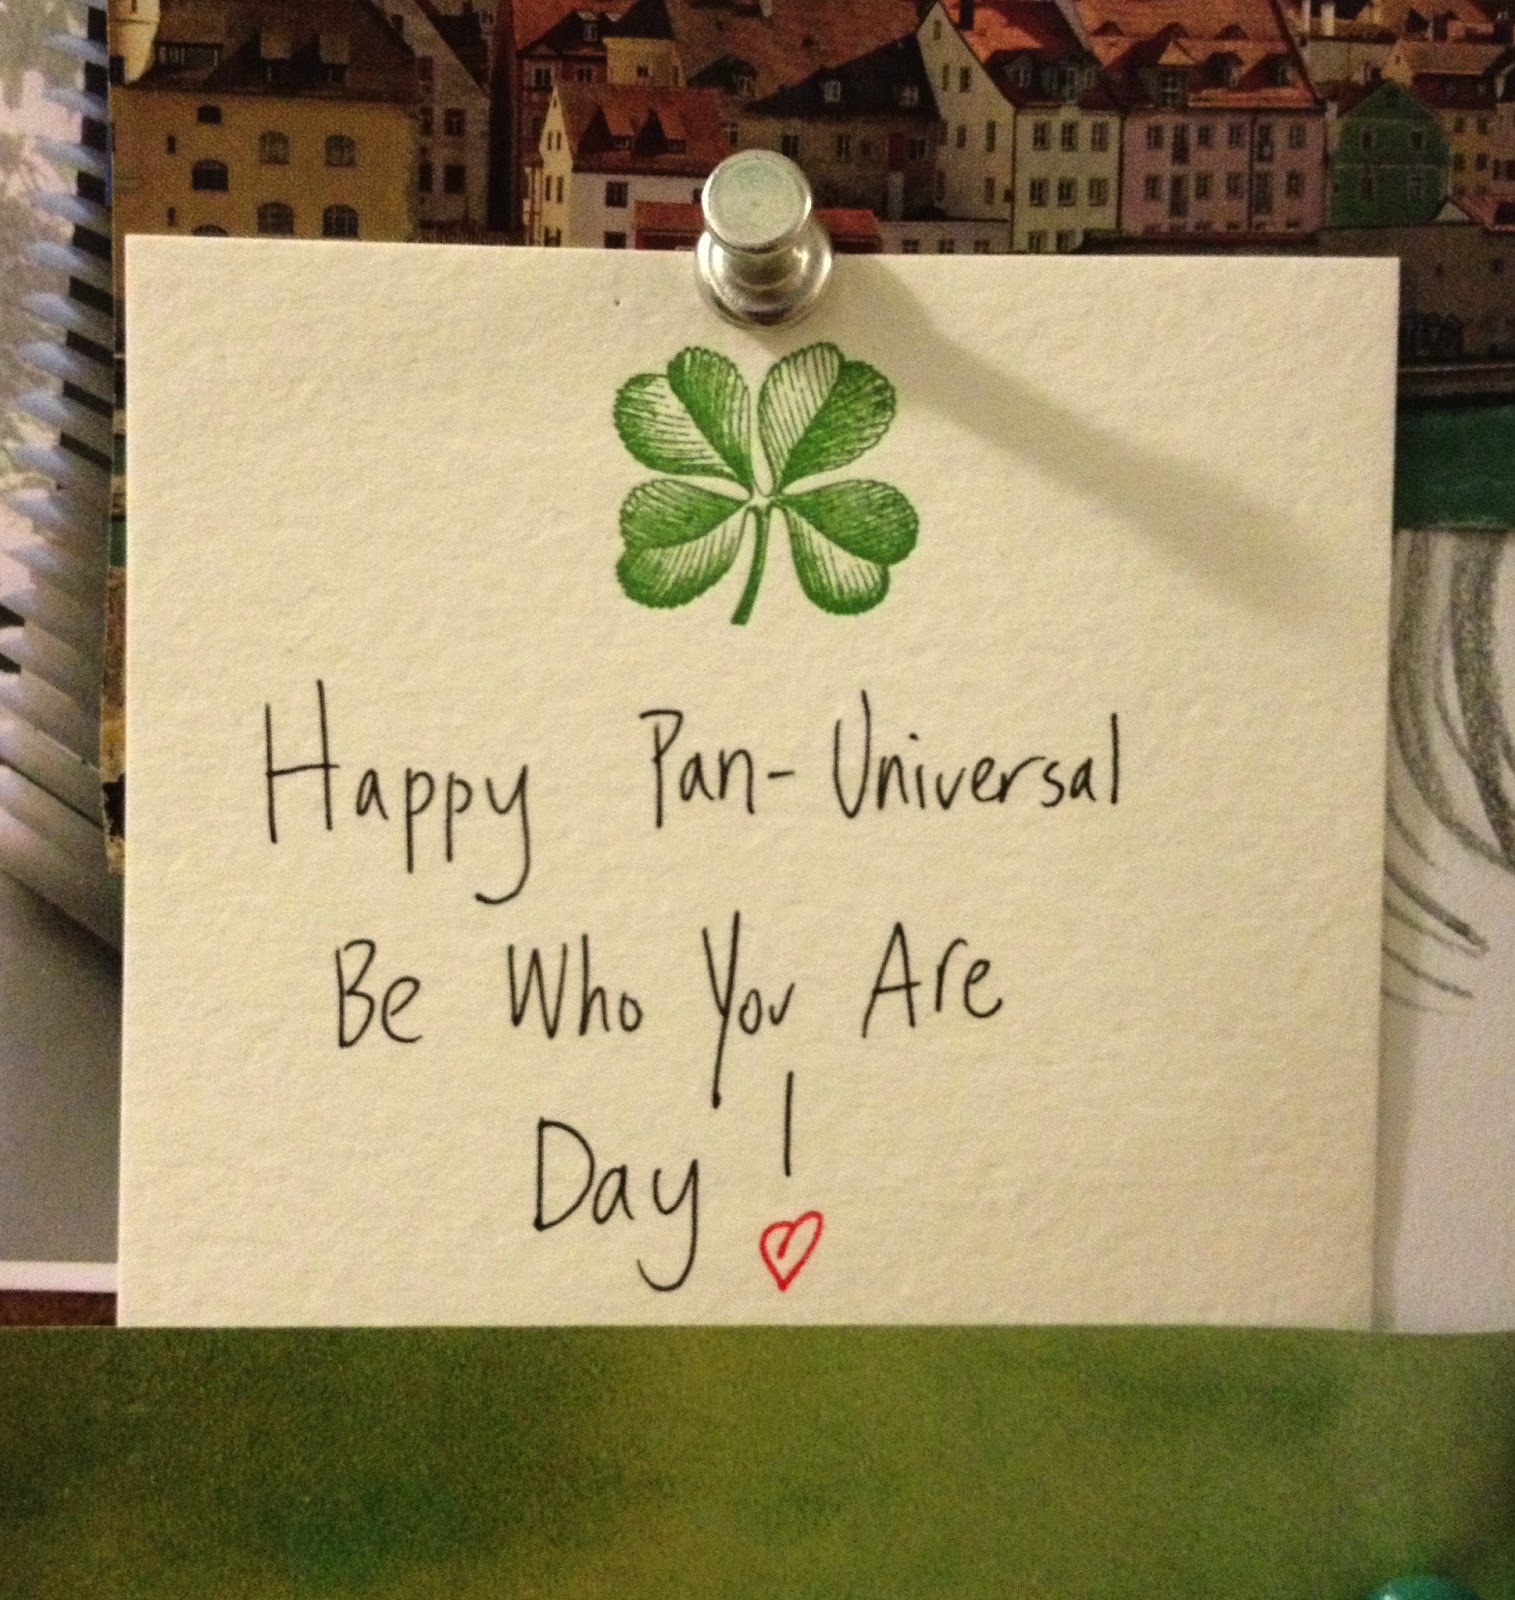 Happy Pan-Universal
Be Who You Are
Day!